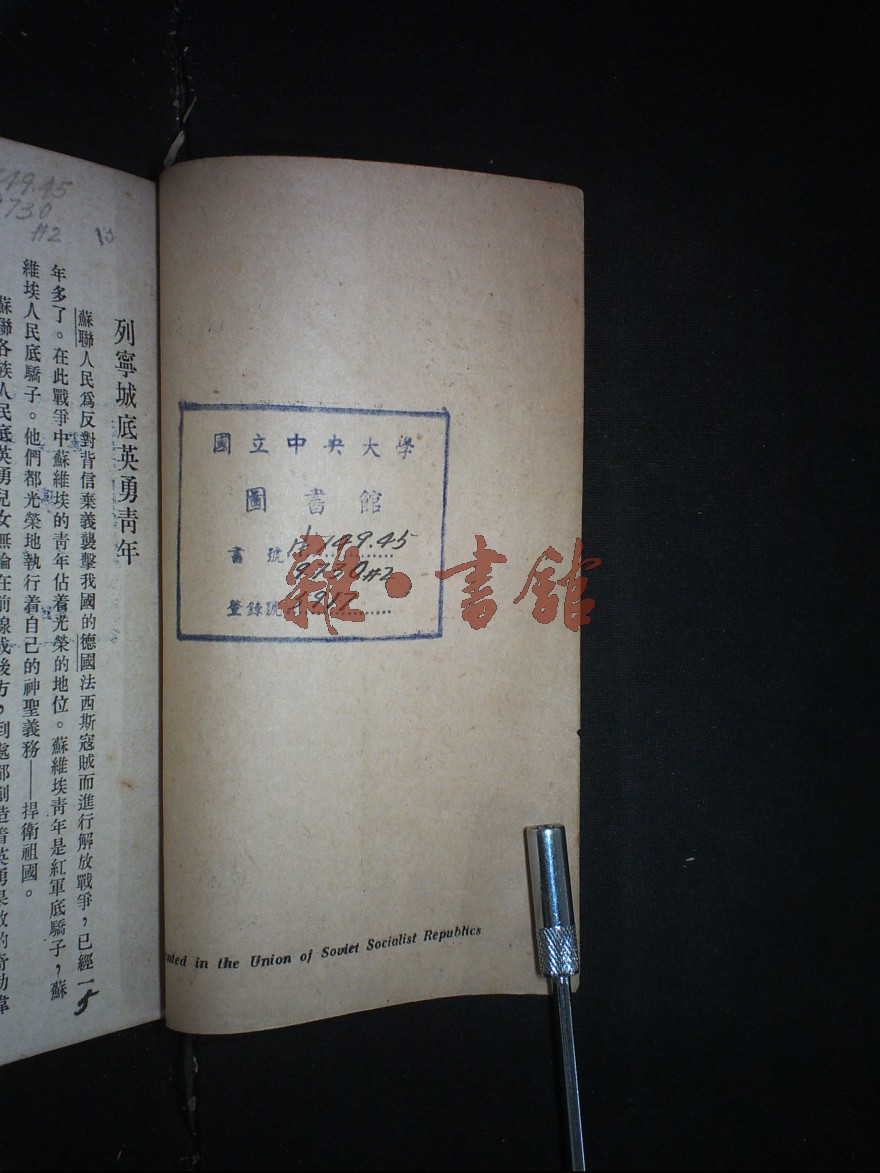 國立中央大學
圖書館
書號 149.45
9730 #2
登錄號
雜·書館
Printed in the Union of Soviet Socialist Republics
49.45
730
#2
列寧城底英勇靑年
蘇聯人民爲反對背信棄義襲擊我國的德國法西斯寇賊而進行解放戰爭，已經一
年多了。在此戰爭中蘇維埃的靑年佔着光榮的地位。蘇維埃靑年是紅軍底驕子，蘇
維埃人民底驕子。他們都光榮地執行着自己的神聖義務——捍衛祖國。
蘇聯各族人民底英勇兒女無論在前線或後方，到處都創造着英勇果敢的奇勳偉
5